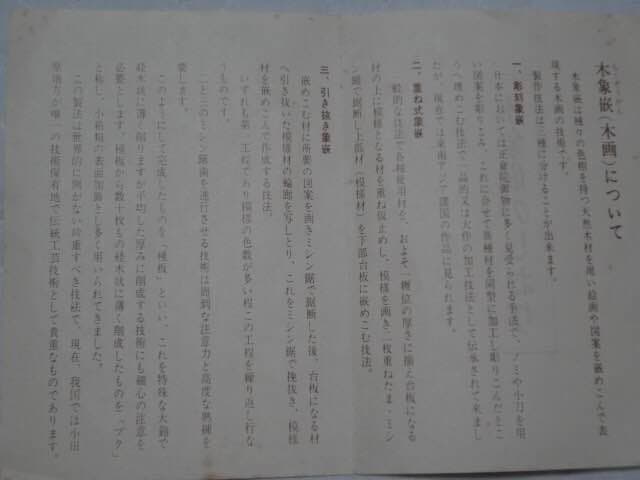 木象嵌(木画)について
木象嵌は種々の色樹を持つ天然木材を用い絵画や図案を嵌めこんで表
現する木画の技術です。
製作技法は三種に分けることが出来ます。
一、彫刻象嵌
日本においては正倉院御物に多く見受られる手法で、ノミや小刀を用
い図案を彫りこみ、これに合せて各種材を同型に加工し彫りこんだところ
うへ埋めこむ技法で一品的又は大作の加工技法として伝承されて来まし
たが、現在では東南アジア諸国の作品に見られます。
二、重ね式象嵌
一般的な技法で各種使用材を、およそ一糎位の厚さに揃え台板になる
材の上に模様となる材を重ね仮止めし、模様を画き二枚重ねたまゝミシ
ン鋸で挽断し上部材(模様材)を下部台板に嵌めこむ技法。
三、引き抜き象嵌
嵌めこむ材に所要の図案を画きミシン鋸で挽断した後、台板になる材
へ引き抜いた模様材の輪廓を写しとり、これをミシン鋸で挽抜き、模様
材を嵌めこんで作成する技法。
いずれも第一工程であり模様の色数が多い程この工程を繰り返し行な
うものです。
二と三のミシン鋸歯を進行させる技術は周到な注意力と高度な熟練を
要します。
このようにして完成したものを「種板」といい、これを特殊な大鉋で
経木状に薄く削りますが平均した厚みに削成する技術にも細心の注意を
必要とします。種板から数十枚もの経木状に薄く削成したものを「ヅク」
と称し、小箱類の表面加飾として多く用いられてきました。
この製法は世界的に例がない珍重すべき技法で、現在、我国では小田
原地方が唯一の技術保有地で伝統工芸技術として貴重なものであります。